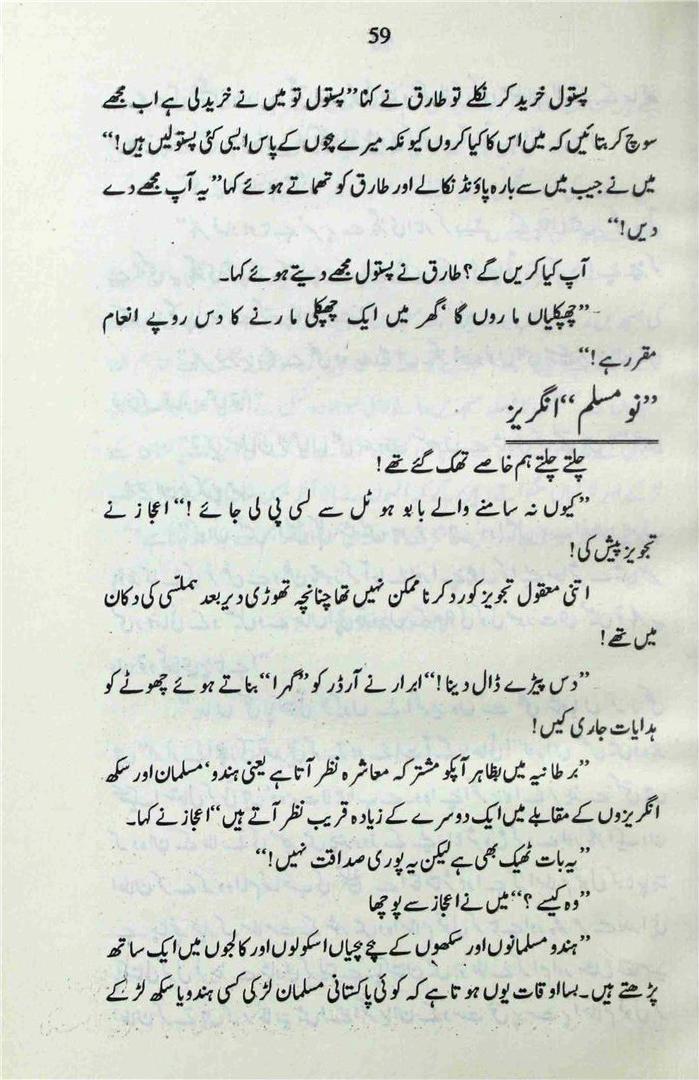 59
پستول خرید کر نکلے تو طارق نے کہا ’’پستول تو میں نے خرید لی ہے اب مجھے
سوچ کر بتائیں کہ میں اس کا کیا کروں کیونکہ میرے بچوں کے پاس ایسی کئی پستولیں ہیں!‘‘
میں نے جیب میں سے بارہ پاؤنڈ نکالے اور طارق کو تھماتے ہوئے کہا ’’یہ آپ مجھے دے
دیں!‘‘
آپ کیا کریں گے؟ طارق نے پستول مجھے دیتے ہوئے کہا۔
’’چھپکلیاں ماروں گا، گھر میں ایک چھپکلی مارنے کا دس روپے انعام
مقرر ہے!‘‘
’’نو مسلم‘‘ انگریز
چلتے چلتے ہم خاصے تھک گئے تھے!
’’کیوں نہ سامنے والے بابو ہوٹل سے لسی پی لی جائے!‘‘ اعجاز نے
تجویز پیش کی!
اتنی معقول تجویز کو رد کرنا ممکن نہیں تھا چنانچہ تھوڑی دیر بعد ہم لسی کی دکان
میں تھے!
’’دس پیڑے ڈال دینا!‘‘ ابرار نے آرڈر کو ’’گہرا‘‘ بناتے ہوئے چھوٹے کو
ہدایات جاری کیں!
’’برطانیہ میں بظاہر آپکو مشترکہ معاشرہ نظر آتا ہے یعنی ہندو، مسلمان اور سکھ
انگریزوں کے مقابلے میں ایک دوسرے کے زیادہ قریب نظر آتے ہیں‘‘ اعجاز نے کہا۔
’’یہ بات ٹھیک بھی ہے لیکن یہ پوری صداقت نہیں!‘‘
’’وہ کیسے؟‘‘ میں نے اعجاز سے پوچھا
’’ہندو مسلمانوں اور سکھوں کے بچے بچیاں اسکولوں اور کالجوں میں ایک ساتھ
پڑھتے ہیں۔ بسا اوقات یوں ہوتا ہے کہ کوئی پاکستانی مسلمان لڑکی کسی ہندو یا سکھ لڑکے